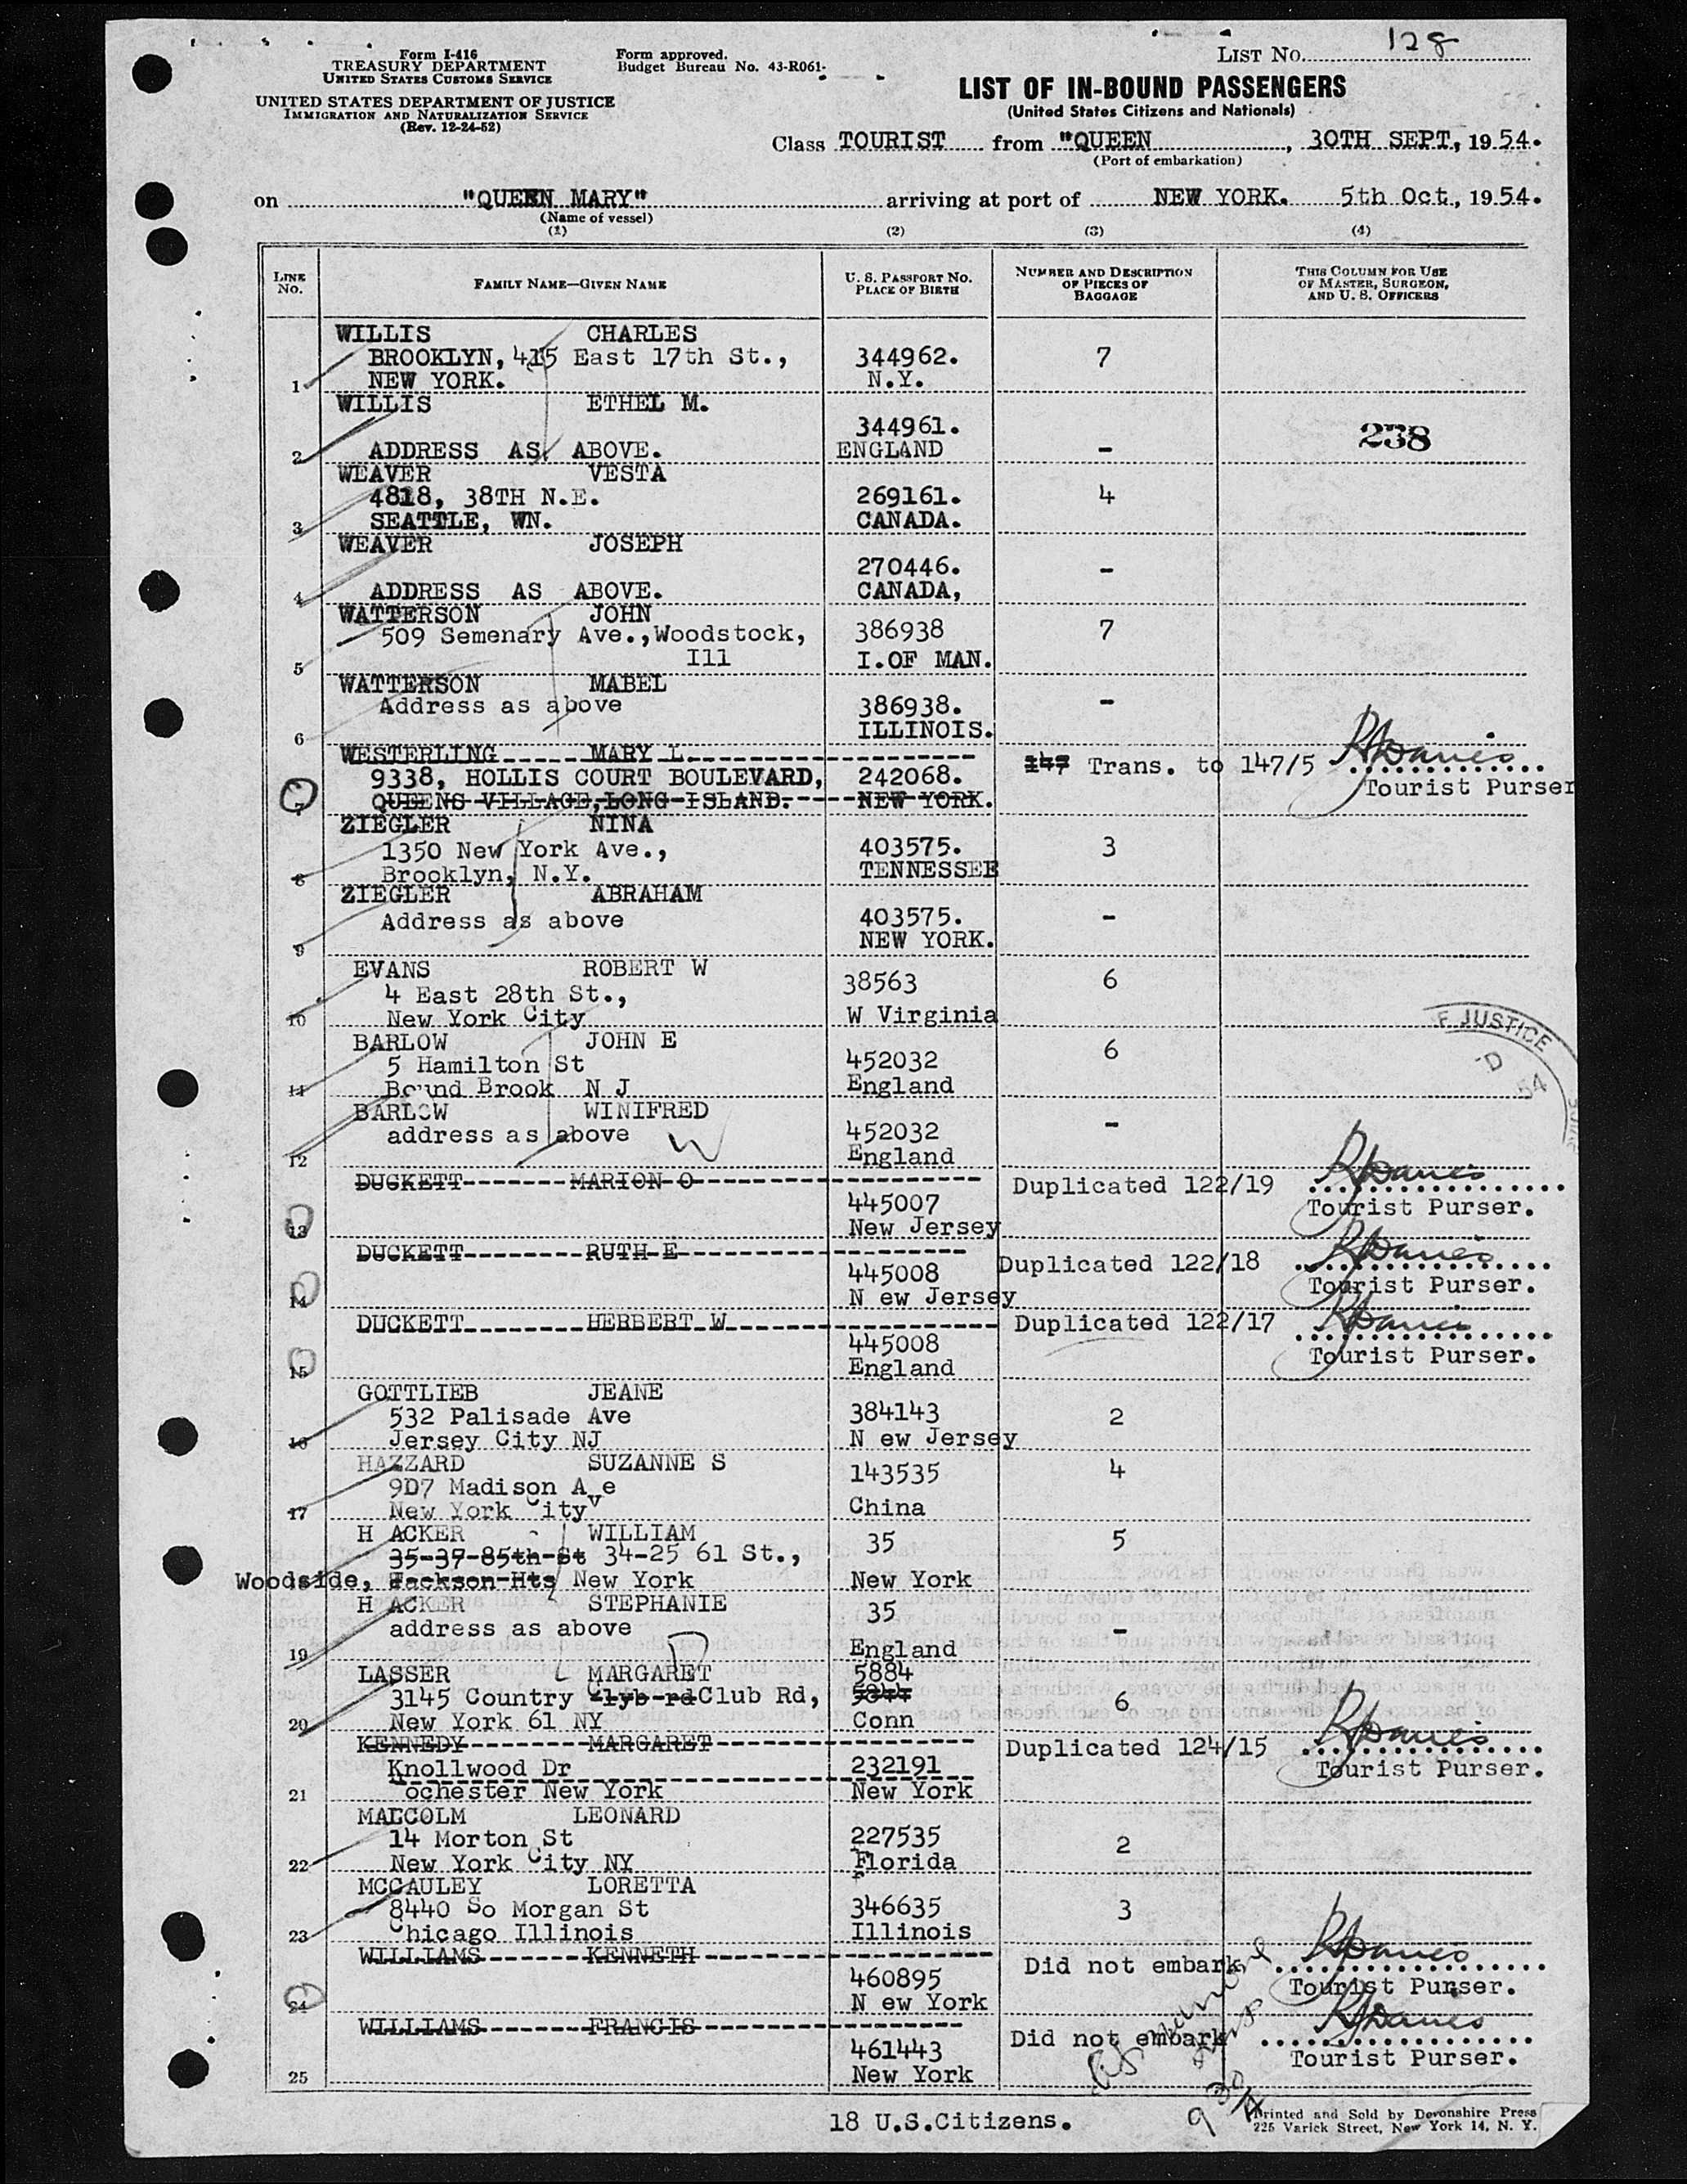 LIST No. 128
Form I-416
TREASURY DEPARTMENT
UNITED STATES CUSTOMS SERVICE
Form approved.
Budget Bureau No. 43-R061-
UNITED STATES DEPARTMENT OF JUSTICE
IMMIGRATION AND NATURALIZATION SERVICE
(Rev. 12-24-52)
LIST OF IN-BOUND PASSENGERS
(United States Citizens and Nationals)
Class TOURIST from "QUEEN, 30TH SEPT, 1954.
(Port of embarkation)
on "QUEEN MARY" arriving at port of NEW YORK. 5th Oct, 1954.
(Name of vessel)
(1) (2) (3) (4)
LINE No. FAMILY NAME—GIVEN NAME U. S. PASSPORT No. PLACE OF BIRTH NUMBER AND DESCRIPTION OF PIECES OF BAGGAGE THIS COLUMN FOR USE OF MASTER, SURGEON, AND U. S. OFFICERS
WILLIS CHARLES
BROOKLYN, 415 East 17th St., 344962. 7
1 NEW YORK. N.Y.
WILLIS ETHEL M.
344961. 238
2 ADDRESS AS ABOVE. ENGLAND -
WEAVER VESTA
4818, 38TH N.E. 269161. 4
3 SEATTLE, WN. CANADA.
WEAVER JOSEPH
270446. -
4 ADDRESS AS ABOVE. CANADA,
WATTERSON JOHN
509 Semenary Ave., Woodstock, 386938 7
5 Ill I.OF MAN.
WATTERSON MABEL
Address as above 386938. -
6 ILLINOIS.
WESTERLING MARY L. 147 Trans. to 147/5 RJDavies
9338, HOLLIS COURT BOULEVARD, 242068. Tourist Purser
7 QUEENS VILLAGE, LONG ISLAND. NEW YORK.
ZIEGLER NINA
1350 New York Ave., 403575. 3
8 Brooklyn, N.Y. TENNESSEE
ZIEGLER ABRAHAM
Address as above 403575. -
9 NEW YORK.
EVANS ROBERT W
4 East 28th St., 38563 6
10 New York City W Virginia
BARLOW JOHN E 6
5 Hamilton St 452032
11 Bound Brook N J England
F JUSTICE
D
54
BARLOW WINIFRED
address as above 452032 -
12 England
DUCKETT MARION O Duplicated 122/19 RJDavies
445007 Tourist Purser.
13 New Jersey
DUCKETT RUTH E Duplicated 122/18 RJDavies
445008 Tourist Purser.
14 N ew Jersey
DUCKETT HERBERT W Duplicated 122/17 RJDavies
445008 Tourist Purser.
15 England
GOTTLIEB JEANE
532 Palisade Ave 384143 2
16 Jersey City NJ N ew Jersey
HAZZARD SUZANNE S 143535 4
9D7 Madison Ave
17 New York City China
H ACKER WILLIAM 35 5
35-37-85th-St 34-25 61 St.,
Woodside, Jackson-Hts New York New York
H ACKER STEPHANIE 35
address as above -
19 England
LASSER MARGARET 5884
3145 Country Clyb-rd Club Rd, 5844 6
20 New York 61 NY Conn
KENNEDY MARGARET Duplicated 124/15 RJDavies
Knollwood Dr 232191 Tourist Purser.
21 ochester New York New York
MALCOLM LEONARD
14 Morton St 227535 2
22 New York City NY Florida
MCCAULEY LORETTA
8440 So Morgan St 346635 3
23 Chicago Illinois Illinois
WILLIAMS KENNETH Did not embark RJDavies
460895 Tourist Purser.
24 N ew York
WILLIAMS FRANCIS Did not embark RJDavies
461443 Tourist Purser.
25 New York
18 U.S.Citizens.
Printed and Sold by Devonshire Press
225 Varick Street, New York 14, N. Y.